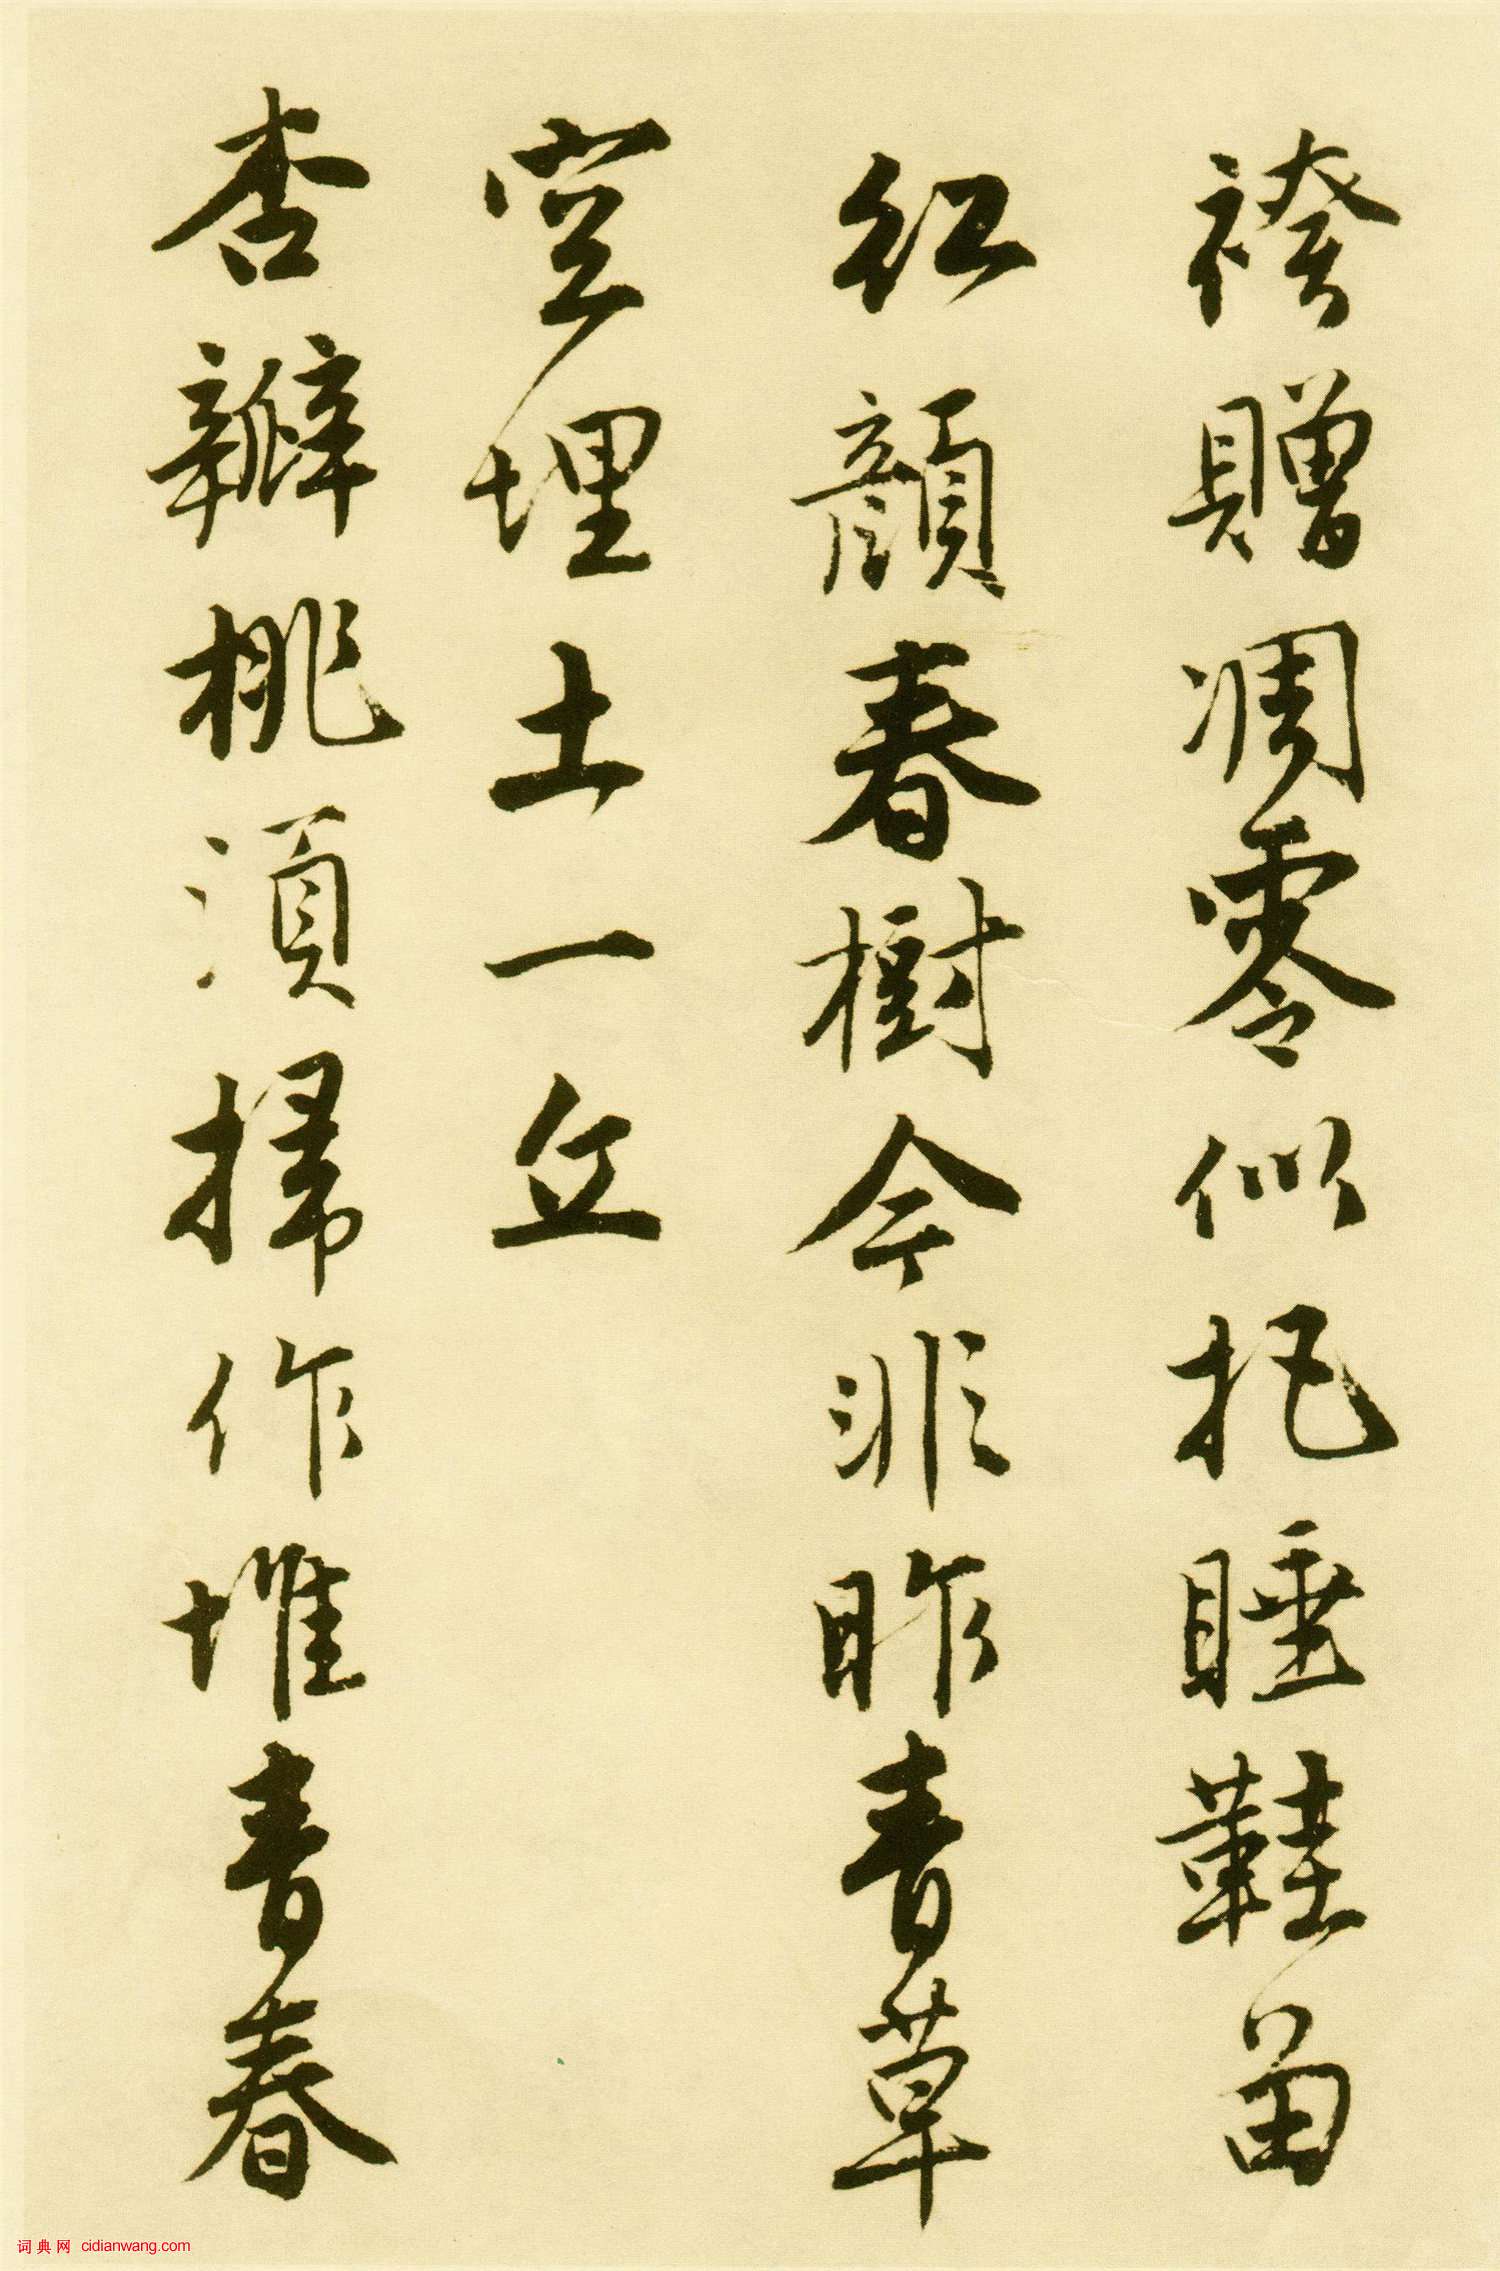 襟贈凋零似把睡鞋留
紅顏春樹今非昨青草
空埋土一丘
杏瓣桃須掃作堆青春
词典网 cidianwang.com